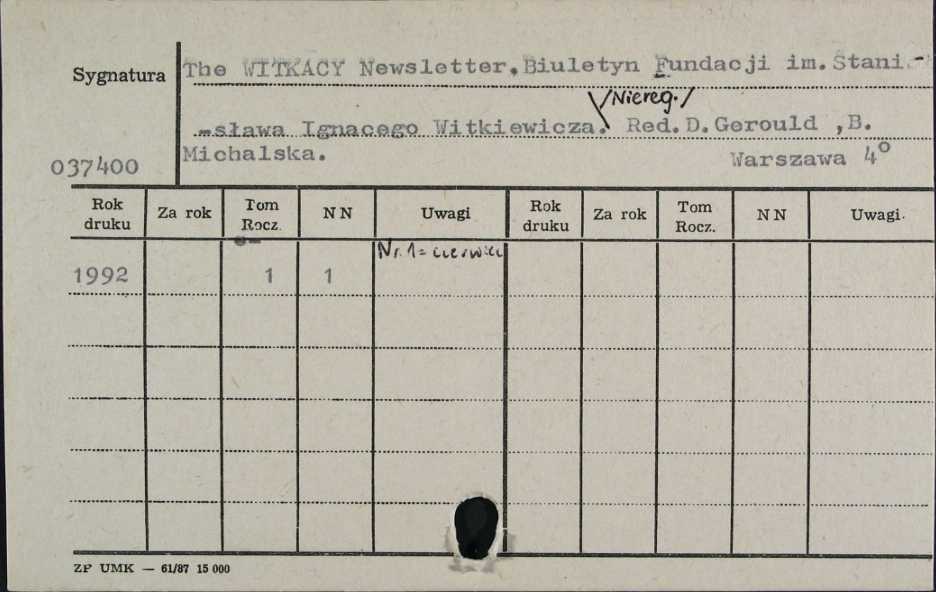 Sygnatura The WITKACY Newsletter. Biuletyn Fundacji im. Stani-
/Niereg./
sława Ignacego Witkiewicza. Red. D. Gerould , B.
037400 Michalska. Warszawa 4°
Rok druku Za rok Tom Rocz. NN Uwagi Rok druku Za rok Tom Rocz. NN Uwagi
Nr. 1 = czerwiec
1992 1 1
ZP UMK — 61/87 15 000